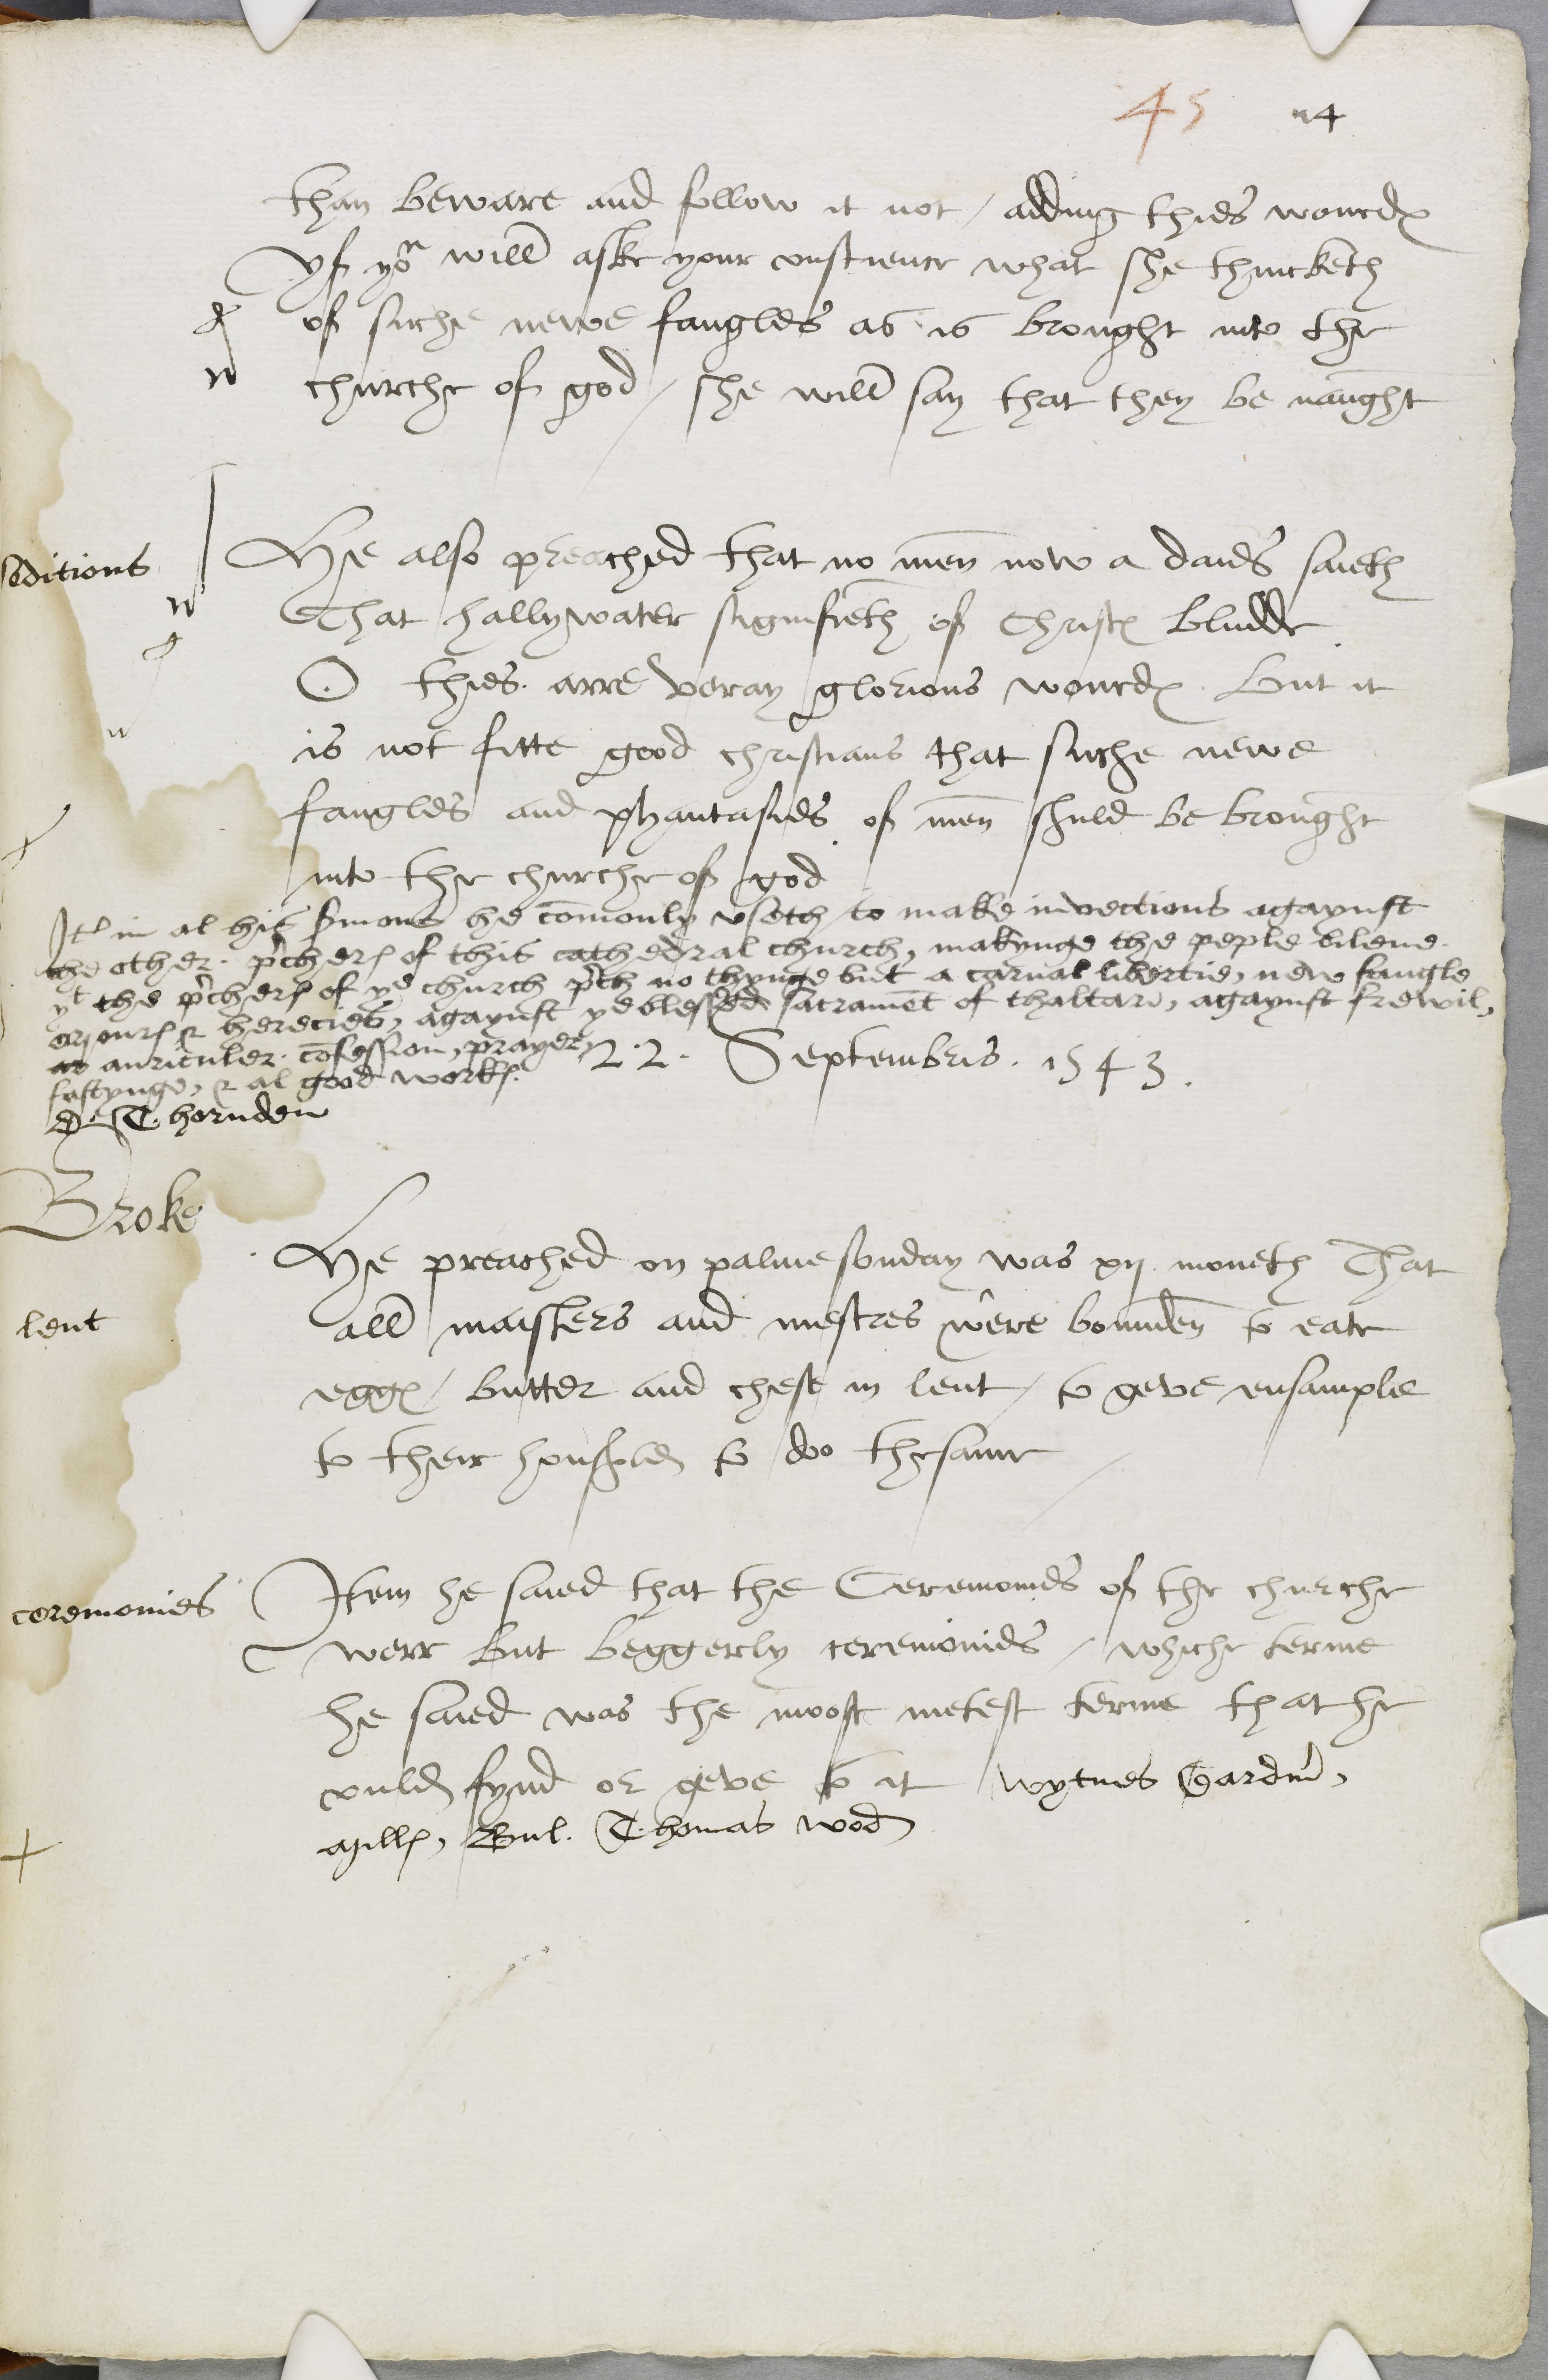 45 n4
than beware and follow it not / adding thies wourdes
yf yo^u will aske your conscience what she thincketh
of suche newe fangles as is brought into the
churche of god / she will say that they be naught
seditious
He also preached that no men now a daies saieth
That hallywater signifieth of Christes bludde
O thies arre veray glorious wourdes But it
is not fitte good christians that suche newe
fangles and phantasies of men shuld be brought
into the churche of god
Itm in al his Smons he comonly useth to make invections agaynst
the other pchers of this cathedral church, makynge the peple bileve
yt the pchers of ye church pch no thynge but a carnal libertie, new fangle
errours & heresies, agaynst ye blessed sacrament of thaltare, agaynst frewil,
auriculer confession, prayer,
fastynge, & al good works.
22. Septembris. 1543.
D. Thornden
Broke
He preached on palme sonday was xij moneth That
lent
all maisters and mestres were bounden to eate
egges / butter and chese in lent / to geve ensample
to their houshold to do thesame
ceremonies
Item he saied that the Ceremonies of the churche
were but beggerly ceremonies / whiche terme
he saied was the moost metest terme that he
could fynd or geve to it Wytnes Gardiner,
mills, Bul. Thomas wod